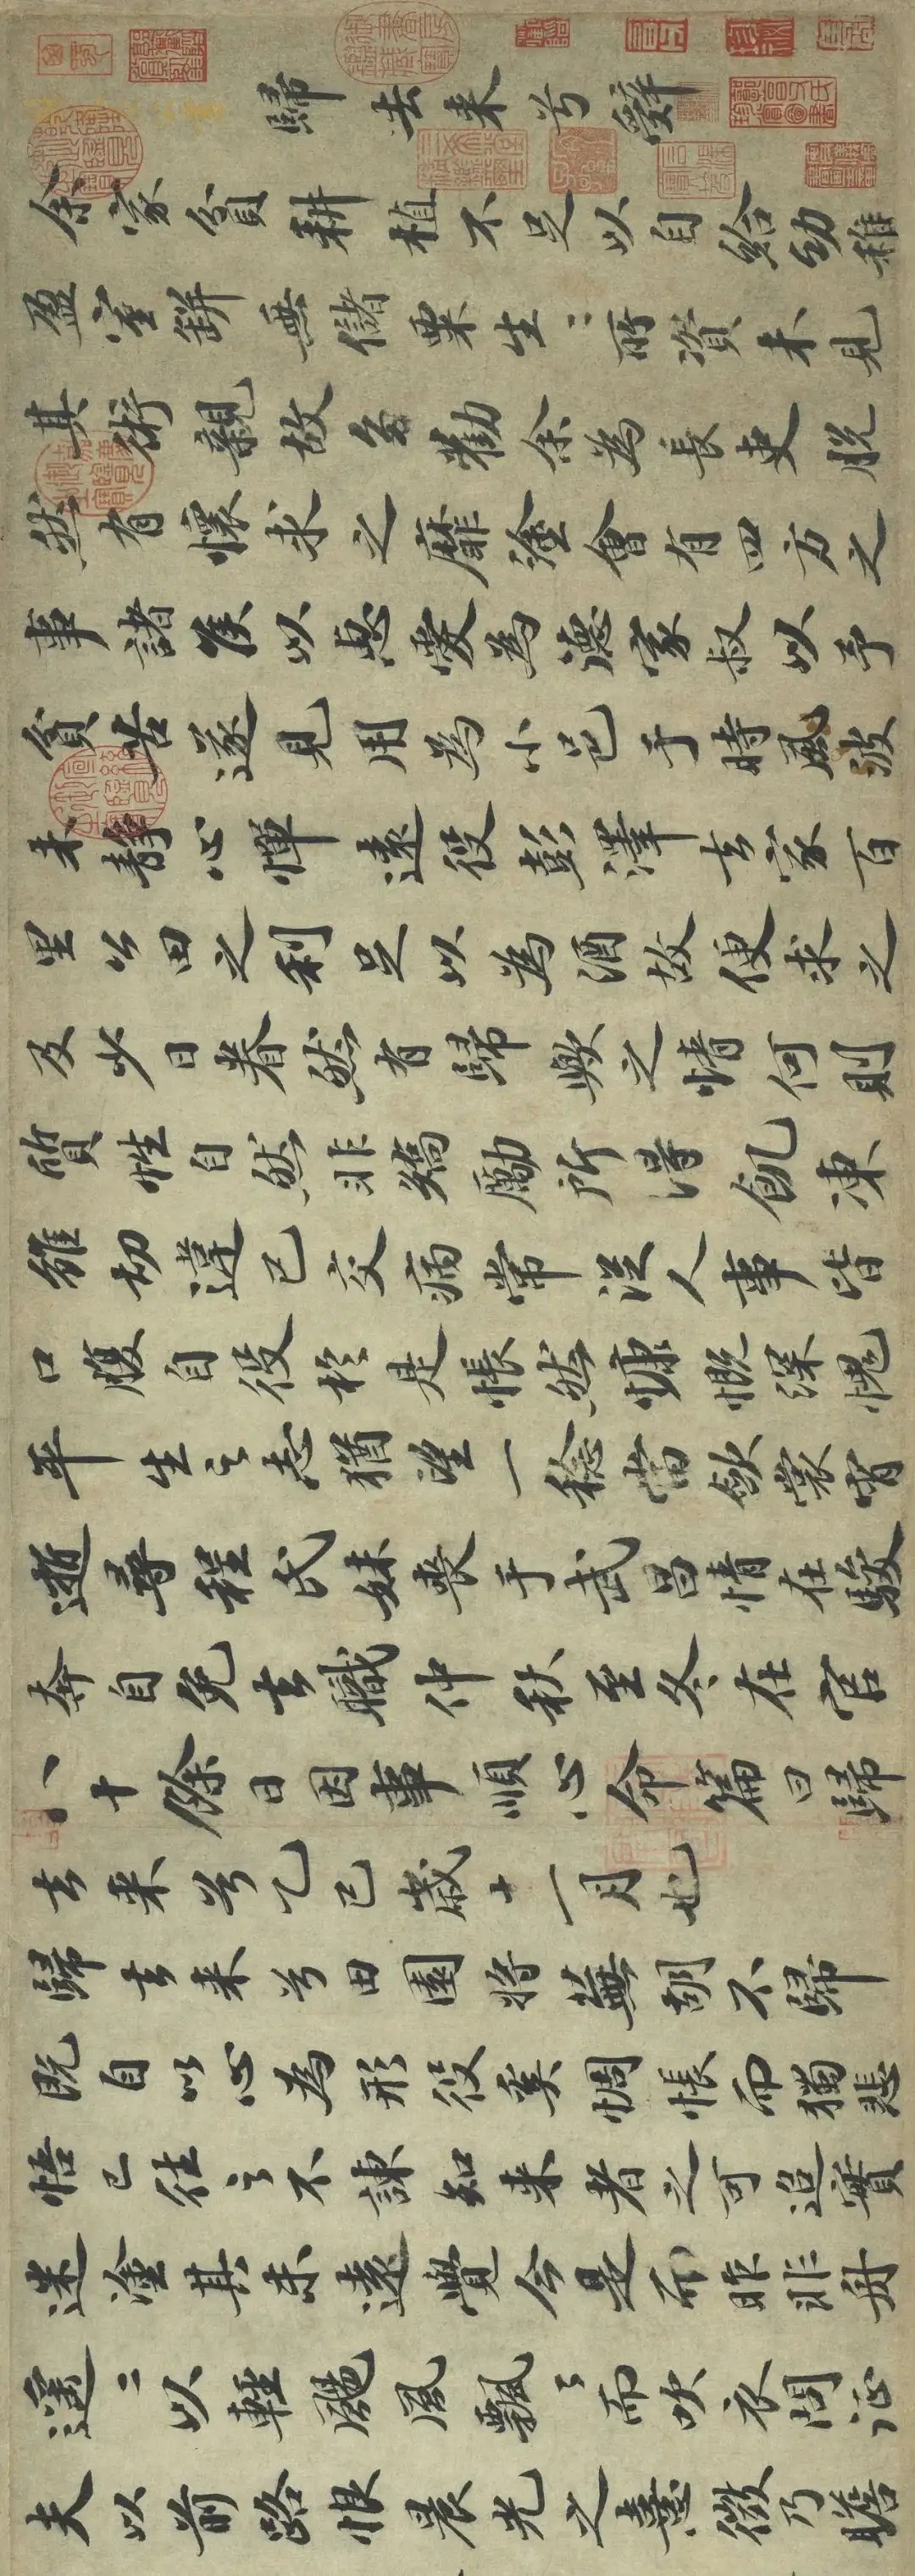 歸去来兮辭
余家貧耕植不足以自給幼稚
盈室缾無儲粟生〻所資未見
其術親故多勸余為長吏脱
然有懷求之靡塗會有四方之
事諸侯以惠愛為德家叔以予
貧苦遂見用為小邑于時風波
未靜心憚遠役彭澤去家百
里公田之利足以為酒故便求之
及少日眷然有歸歟之情何則
質性自然非矯勵所得飢凍
雖切違己交病常從人事皆
口腹自役於是悵然慷慨深愧
平生之志猶望一稔當斂裳宵
逝尋程氏妹喪于武昌情在駿
奔自免去職仲秋至冬在官
八十餘日因事順心命篇曰歸
去来兮乙巳歲十一月也
歸去来兮田園將蕪胡不歸
既自以心為形役奚惆悵而獨悲
悟已往之不諫知来者之可追實
迷塗其未遠覺今是而昨非舟
遥〻以輕颺風飄〻而吹衣問征
夫以前路恨晨光之熹微乃瞻